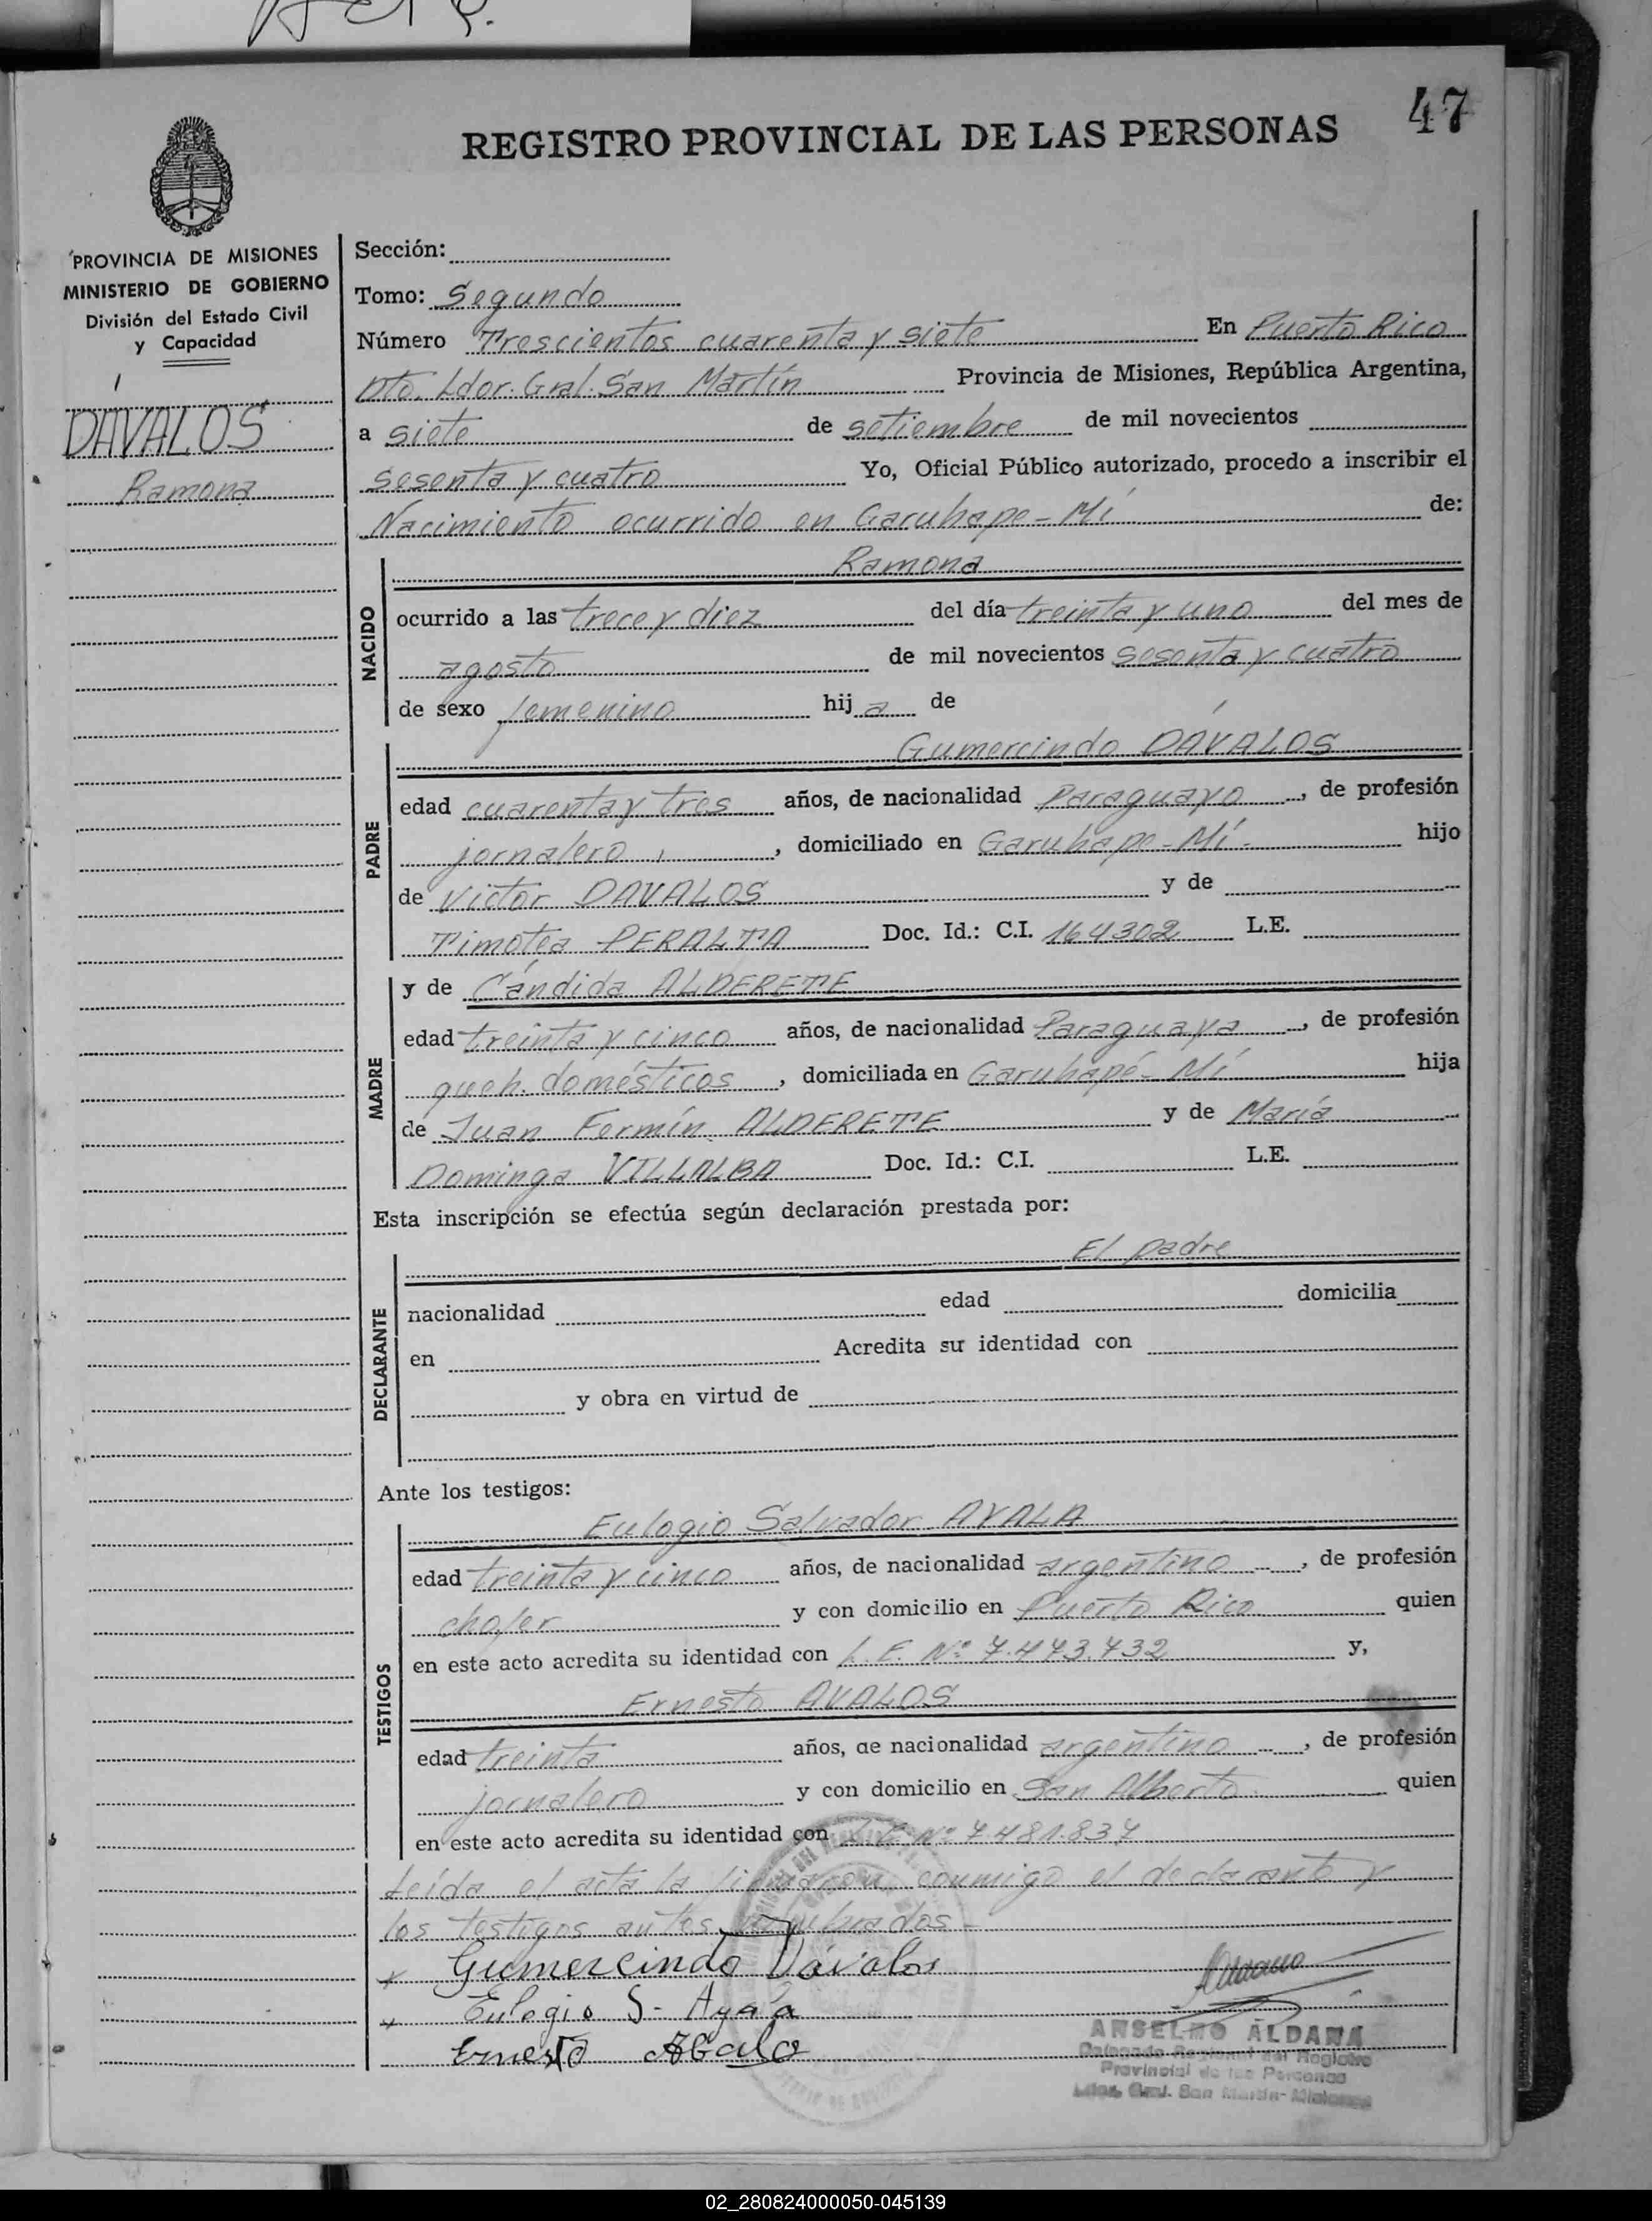 47
REGISTRO PROVINCIAL DE LAS PERSONAS
PROVINCIA DE MISIONES
MINISTERIO DE GOBIERNO
División del Estado Civil
y Capacidad
DÁVALOS
Ramona
Sección:
Tomo: Segundo
Número Trescientos cuarenta y siete En Puerto Rico
Dto. Ldor. Gral. San Martín Provincia de Misiones, República Argentina,
a siete de setiembre de mil novecientos
sesenta y cuatro Yo, Oficial Público autorizado, procedo a inscribir el
Nacimiento ocurrido en Garuhape-Mí de:
NACIDO
Ramona
ocurrido a las trece y diez del día treinta y uno del mes de
agosto de mil novecientos sesenta y cuatro
de sexo femenino hija de
PADRE
Gumercindo DÁVALOS
edad cuarenta y tres años, de nacionalidad Paraguayo, de profesión
jornalero, domiciliado en Garuhape-Mí- hijo
de Victor DAVALOS y de
Timotea PERALTA Doc. Id.: C.I. 164302 L.E.
MADRE
y de Cándida ALDERETE
edad treinta y cinco años, de nacionalidad Paraguaya, de profesión
queh. domésticos, domiciliada en Garuhapé-Mí hija
de Juan Fermín ALDERETE y de María
Dominga VILLALBA Doc. Id.: C.I. L.E.
Esta inscripción se efectúa según declaración prestada por:
DECLARANTE
El padre
nacionalidad edad domicilia
en Acredita su identidad con
y obra en virtud de
Ante los testigos:
TESTIGOS
Eulogio Salvador AYALA
edad treinta y cinco años, de nacionalidad argentino, de profesión
chofer y con domicilio en Puerto Rico quien
en este acto acredita su identidad con L.E. Nº 7.473.732 y,
Ernesto AVALOS
edad treinta años, de nacionalidad argentino, de profesión
jornalero y con domicilio en San Alberto quien
en este acto acredita su identidad con L.E. Nº 7481.837
Leída el acta la firmaron conmigo el declarante y
los testigos antes nombrados-
x Gumercindo Dávalos
x Eulogio S- Ayala
Ernesto Abalo
ANSELMO ALDANA
Delegado Regional del Registro
Provincial de las Personas
Ldor. Gral. San Martín-Misiones
02_280824000050-045139